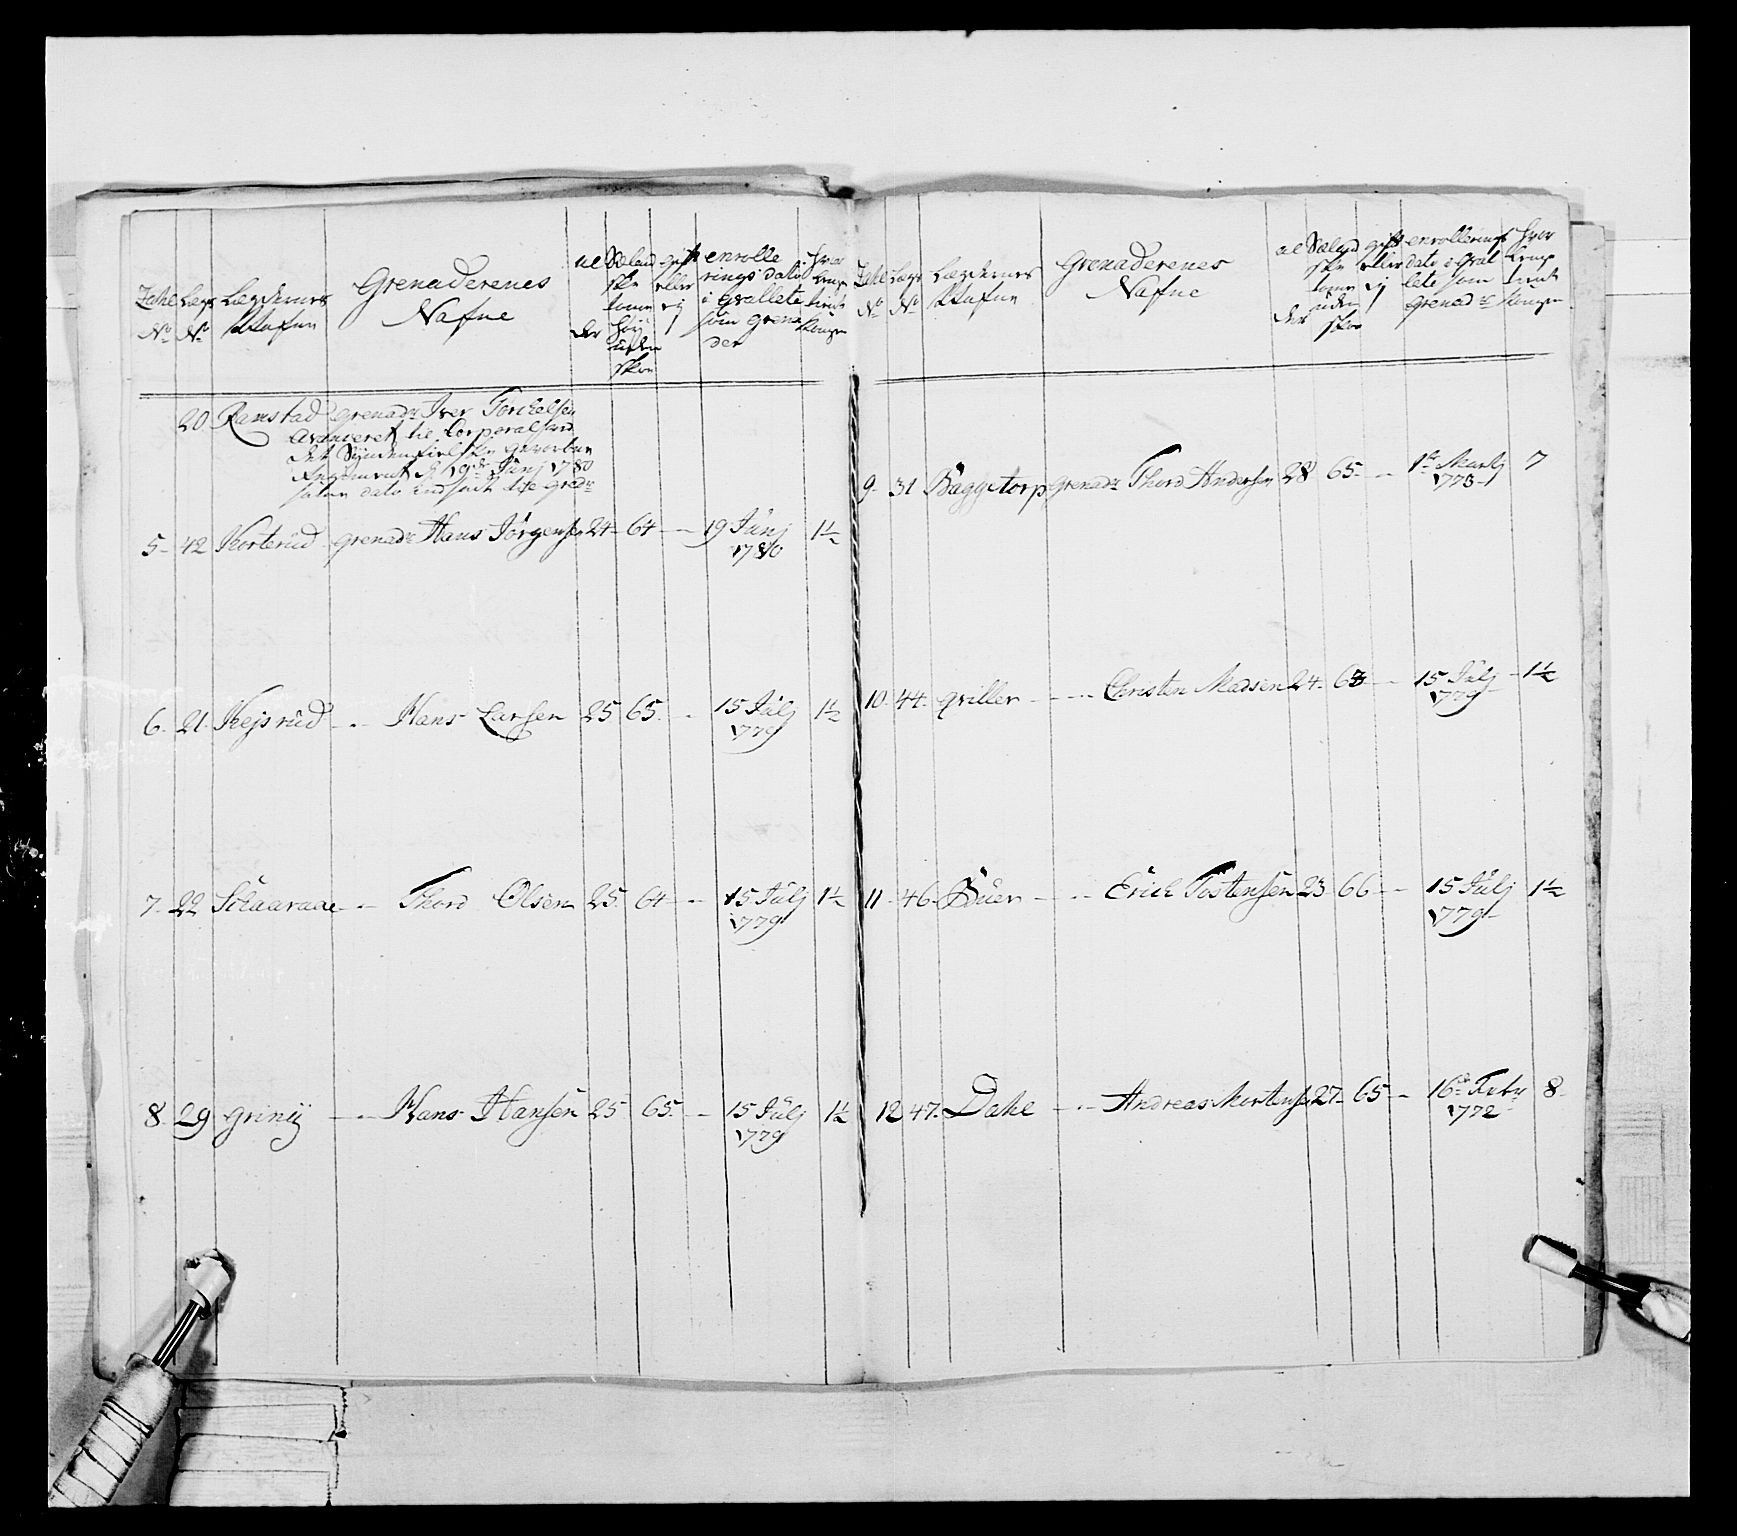 Tahl No
Lægs No
Lægdernes Nafne
Grenaderenes Nafne
alder
Sælandske tomer høy uden skoe
gift eller ej
enrollerings dato i Qvallete som Grenader
hvor længe tient kongen
20 Ramstad grenadr Iver Torchelsen
avanceret til Corporal ved
det Syndenfielske gevorbne
Regiment d 19de Junj 1780
samme dato indsadt til gredr
5 - 42 Korterud - grenadr Hans Jørgensen 24 - 64 - - 19 Junj 1780 1½
6 - 21 - Kejsrud - - - Hans Larsen 25 65 - - 15 Julj 1779 1½
7 - 22 Schaaraae - - - Thord Olsen 25 64 - - 15 Julj 1779 1½
8 - 29 griny - - - Hans Hansen 25 65 - - 15 Julj 1779 1½
Tahl No
Lægs No
Lægdernes Nafne
Grenaderenes Nafne
alder
Sælandske tomer uden skoe
gift eller ej
enrollerings dato i Qvallete som grenadr
hvor længe tient kongen
9 - 31 Baggetorp grenadr Thord Andersen 28 65 - - 1te Martj 1773 7
10 - 44 - qviller - - - Christen Madsen 24 - 63 - - 15 Julj 1779 - 1½
11 - 46 - Buer - - - Erich Tostensen 23 66 - - 15 Julj 1779 1½
12 47 - Dahl - - - Andreas Mortensen 27 - 65 - - 16de Febr 1772 8 -